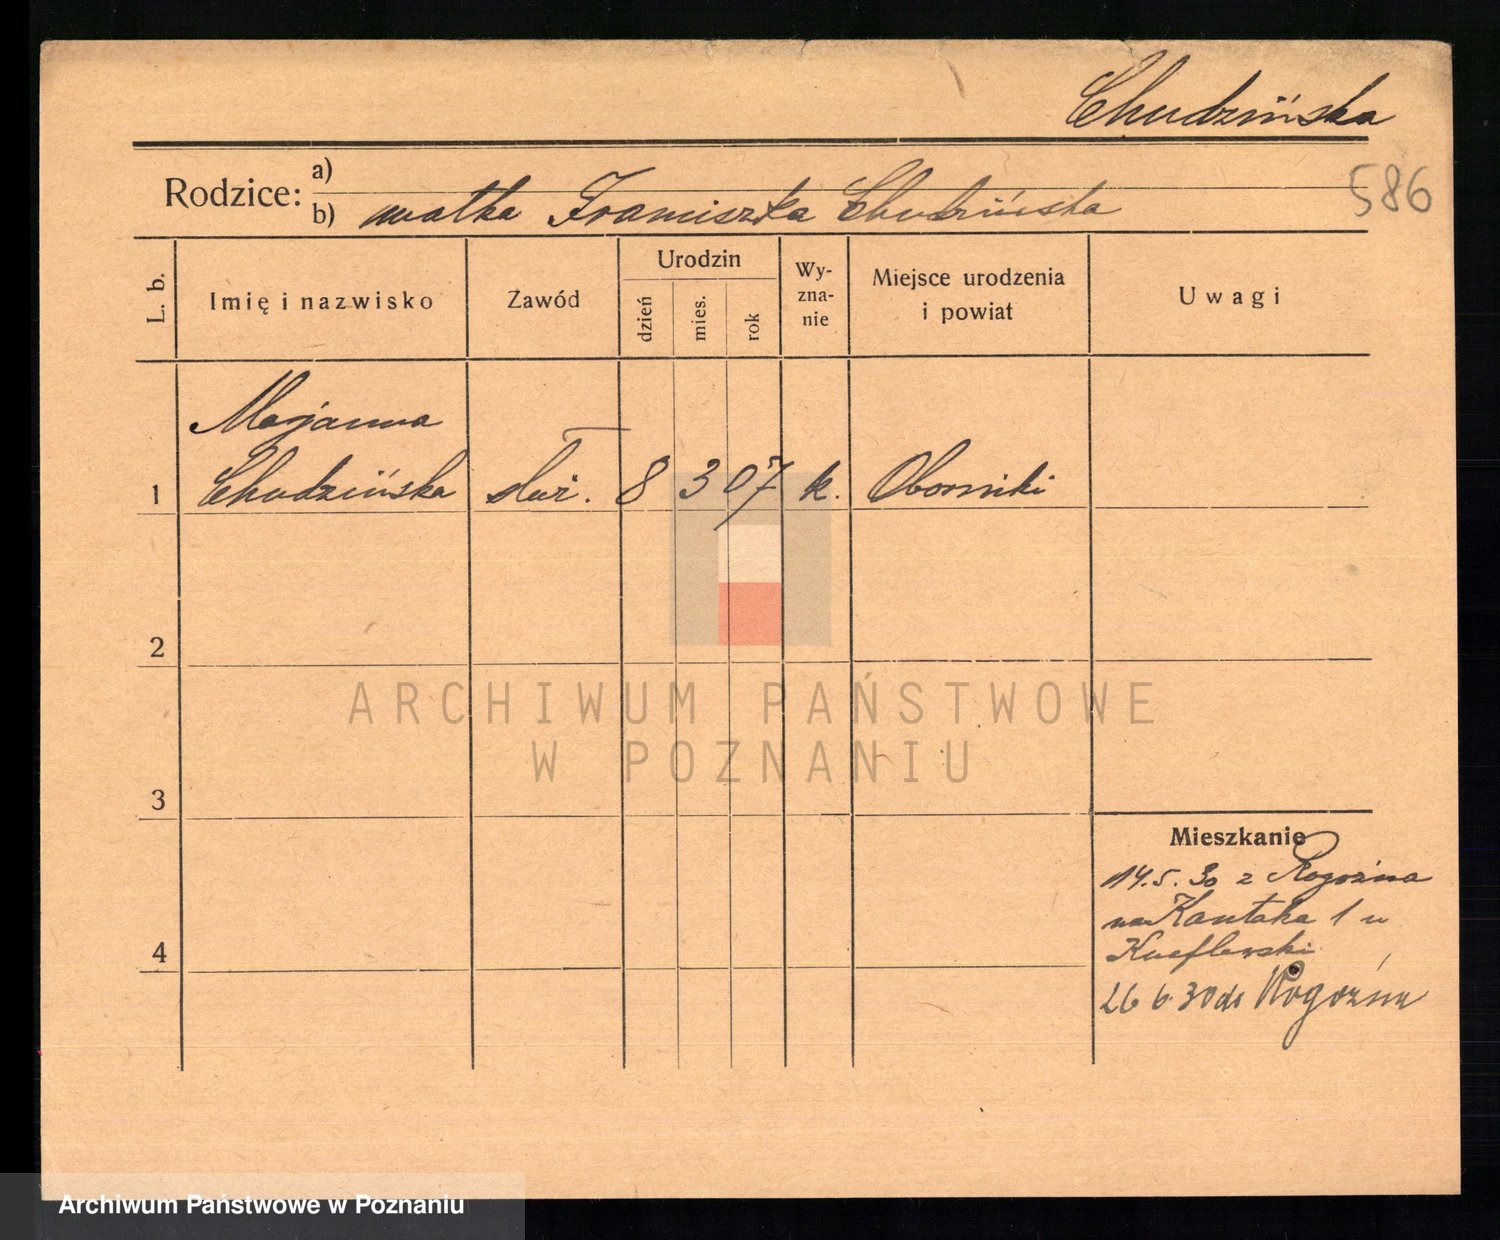 Chudzińska
586
Rodzice: a)
b) matka Franciszka Chudzińska
L. b. Imię i nazwisko Zawód Urodzin dzień mies. rok Wyznanie Miejsce urodzenia i powiat Uwagi
Marjanna
1 Chudzińska służ. 8 3 07 k. Oborniki
2
ARCHIWUM PAŃSTWOWE
W POZNANIU
3
Mieszkanie
14.5.30 z Rogoźna
na Kantaka 1 u
4
26 6. 30 do Rogoźna
Archiwum Państwowe w Poznaniu